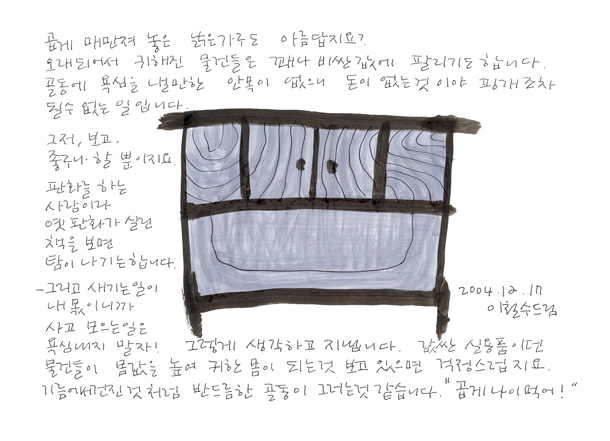 곱게 매만져 놓은 낡은가구도 아름답지요?
오래되어서 귀해진 물건들은 꽤나 비싼값에 팔리기도합니다.
골동에 욕심을 낼만한 안목이 없으니 돈이 없는것이야 핑개조차
될수 없는 일입니다.
그저, 보고,
좋구나. 할 뿐이지요.
판화를 하는
사람이라
옛 판화가 실린
책을 보면
탐이 나기는합니다.
-그리고 새기는일이
내 몫이니까
사고 모으는일은
욕심내지 말자! 그렇게 생각하고 지냅니다. 값싼 실용품이던
물건들이 몸값을 높여 귀한 몸이 되는것 보고 있으면 걱정스럽지요.
기름에서건진것처럼 반드름한 골동이 그러는것 같습니다. "곱게 나이먹어!"
2004.12.17
이철수드림